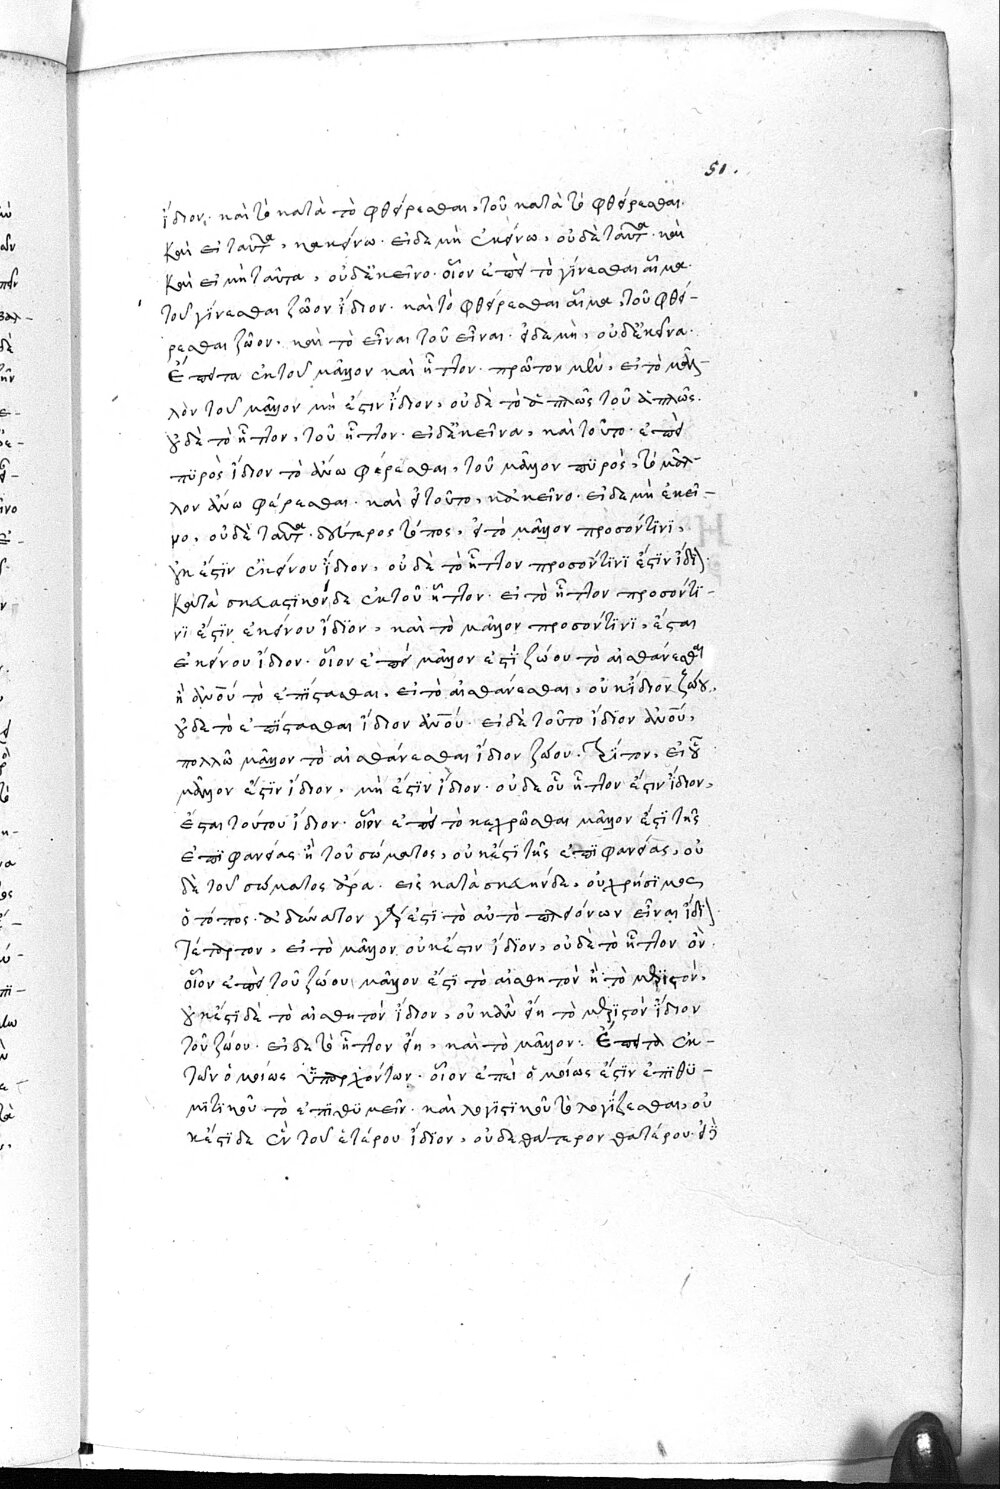 51.
ἴδιον· καὶ τὸ κατὰ τὸ φθείρεσθαι, τοῦ κατὰ τὸ φθείρεσθαι.
Καὶ εἰ ταῦτα, κακείνω· εἰ δὲ μὴ ἐκείνω, οὐδὲ ταῦτα· καὶ
Καὶ εἰ μὴ ταῦτα, οὐδ' ἐκεῖνο· οἷον ἐπεὶ τὸ γίνεσθαι αἷμα
τοῦ γίνεσθαι ζῶον ἴδιον· καὶ τὸ φθείρεσθαι αἷμα, τοῦ φθεί-
ρεσθαι ζῶον· καὶ τὸ εἶναι τοῦ εἶναι· εἰ δὲ μὴ, οὐδ' ἐκεῖνα·
Ἔπειτα ἐκ τοῦ μᾶλλον καὶ ἧττον· πρῶτον μὲν, εἰ τὸ μᾶλ-
λον τοῦ μᾶλλον μή ἐστιν ἴδιον, οὐδὲ τὸ ἁπλῶς τοῦ ἁπλῶς·
οὐδὲ τὸ ἧττον, τοῦ ἧττον· εἰ δ' ἐκεῖνα, καὶ τοῦτο· ἐπεὶ
πυρὸς ἴδιον τὸ ἄνω φέρεσθαι, τοῦ μᾶλλον πυρὸς, τὸ μᾶλ-
λον ἄνω φέρεσθαι· καὶ εἰ τοῦτο, κἀκεῖνο· εἰ δὲ μὴ ἐκεῖ-
νο, οὐδὲ ταῦτα· δεύτερος τόπος, εἰ τὸ μᾶλλον προσόν τινι,
οὐκ ἔστιν ἐκείνου ἴδιον, οὐδὲ τὸ ἧττον προσόν τινί ἐστιν ἴδιον·
Κατασκευαστικὸν δὲ ἐκ τοῦ ἧττον· εἰ τὸ ἧττον προσόν τι-
νι ἐστὶν ἐκείνου ἴδιον, καὶ τὸ μᾶλλον προσόν τινι, ἔσται
ἐκείνου ἴδιον· οἷον ἐπεὶ μᾶλλόν ἐστι ζώου τὸ αἰσθάνεσθαι
ἢ ἀνου τὸ ἐπίστασθαι, εἰ τὸ αἰσθάνεσθαι, οὐκ ἴδιον ζώου,
οὐδὲ τὸ ἐπίστασθαι ἴδιον ἀνου· εἰ δὲ τοῦτο ἴδιον ἀνου,
πολλῶ μᾶλλον τὸ αἰσθάνεσθαι ἴδιον ζώου· Τρίτον, εἰ οὗ
μᾶλλον ἔστιν ἴδιον, μὴ ἔστιν ἴδιον· οὐδὲ οὗ ἧττον ἔστιν ἴδιον,
ἔσται τούτου ἴδιον· οἷον ἐπεὶ τὸ κεχρῶσθαι μᾶλλόν ἐστι τῆς
ἐπιφανείας ἢ τοῦ σώματος, οὐκ ἔστι τῆς ἐπιφανείας, οὐ
δὲ τοῦ σώματος ἄρα· εἰς κατασκευὴν δὲ, οὐ χρήσιμος
ὁ τόπος· ἀδύνατον γάρ ἐστι τὸ αὐτὸ πλειόνων εἶναι ἴδιον·
Τέταρτον, εἰ τὸ μᾶλλον οὐκ ἔστιν ἴδιον, οὐδὲ τὸ ἧττον ὄν·
οἷον ἐπεὶ τοῦ ζώου μᾶλλόν ἐστι τὸ αἰσθητὸν ἢ τὸ μεριστόν,
οὐκ ἔστι δὲ τὸ αἰσθητὸν ἴδιον, οὐκ ἂν εἴη τὸ μεριστὸν ἴδιον
τοῦ ζώου· εἰ δὲ τὸ ἧττον εἴη, καὶ τὸ μᾶλλον· Ἔπειτα ἐκ
τῶν ὁμοίως ὑπαρχόντων· οἷον ἐπεὶ ὁμοίως ἐστὶν ἐπιθυ-
μητικοῦ τὸ ἐπιθυμεῖν· καὶ λογιστικοῦ τὸ λογίζεσθαι, οὐ
κ ἔστι δὲ ἓν τοῦ ἑτέρου ἴδιον, οὐδὲ θάτερον θατέρου· εἰ